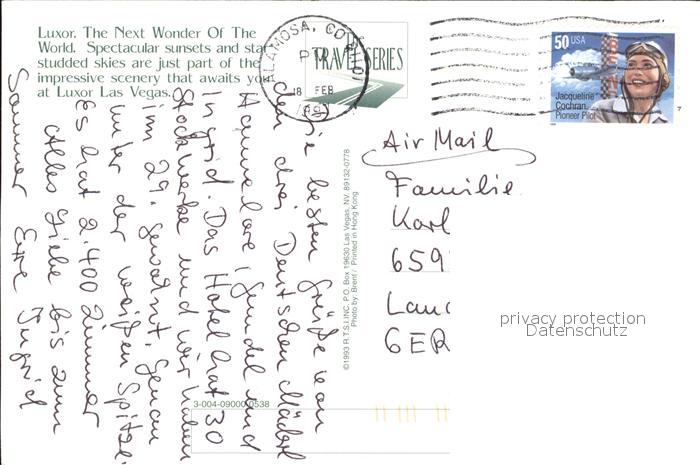 Luxor. The Next Wonder Of The
World. Spectacular sunsets and star-
studded skies are just part of the
impressive scenery that awaits you
at Luxor Las Vegas.
TRAVEL SERIES
ALAMOSA, COLO
PM
18 FEB
50 USA
Jacqueline
Cochran
Pioneer Pilot
Die besten Grüße von
den drei Deutschen Mädel
Hannelore, Gundel und
Ingrid. Das Hotel hat 30
Stockwerke und wir haben
im 29. gewohnt. Genau
unter der weißen Spitze.
Es hat 2.400 Zimmer
Alles Liebe bis zum
Sommer Eure Ingrid
©1993 R.T.S.I. INC. P.O. Box 19630 Las Vegas, NV. 89132-0778
Photo by: Brent / Printed in Hong Kong
3-004-09000-0538
Air Mail
Familie
Karl
659
Land
GER
privacy protection
Datenschutz